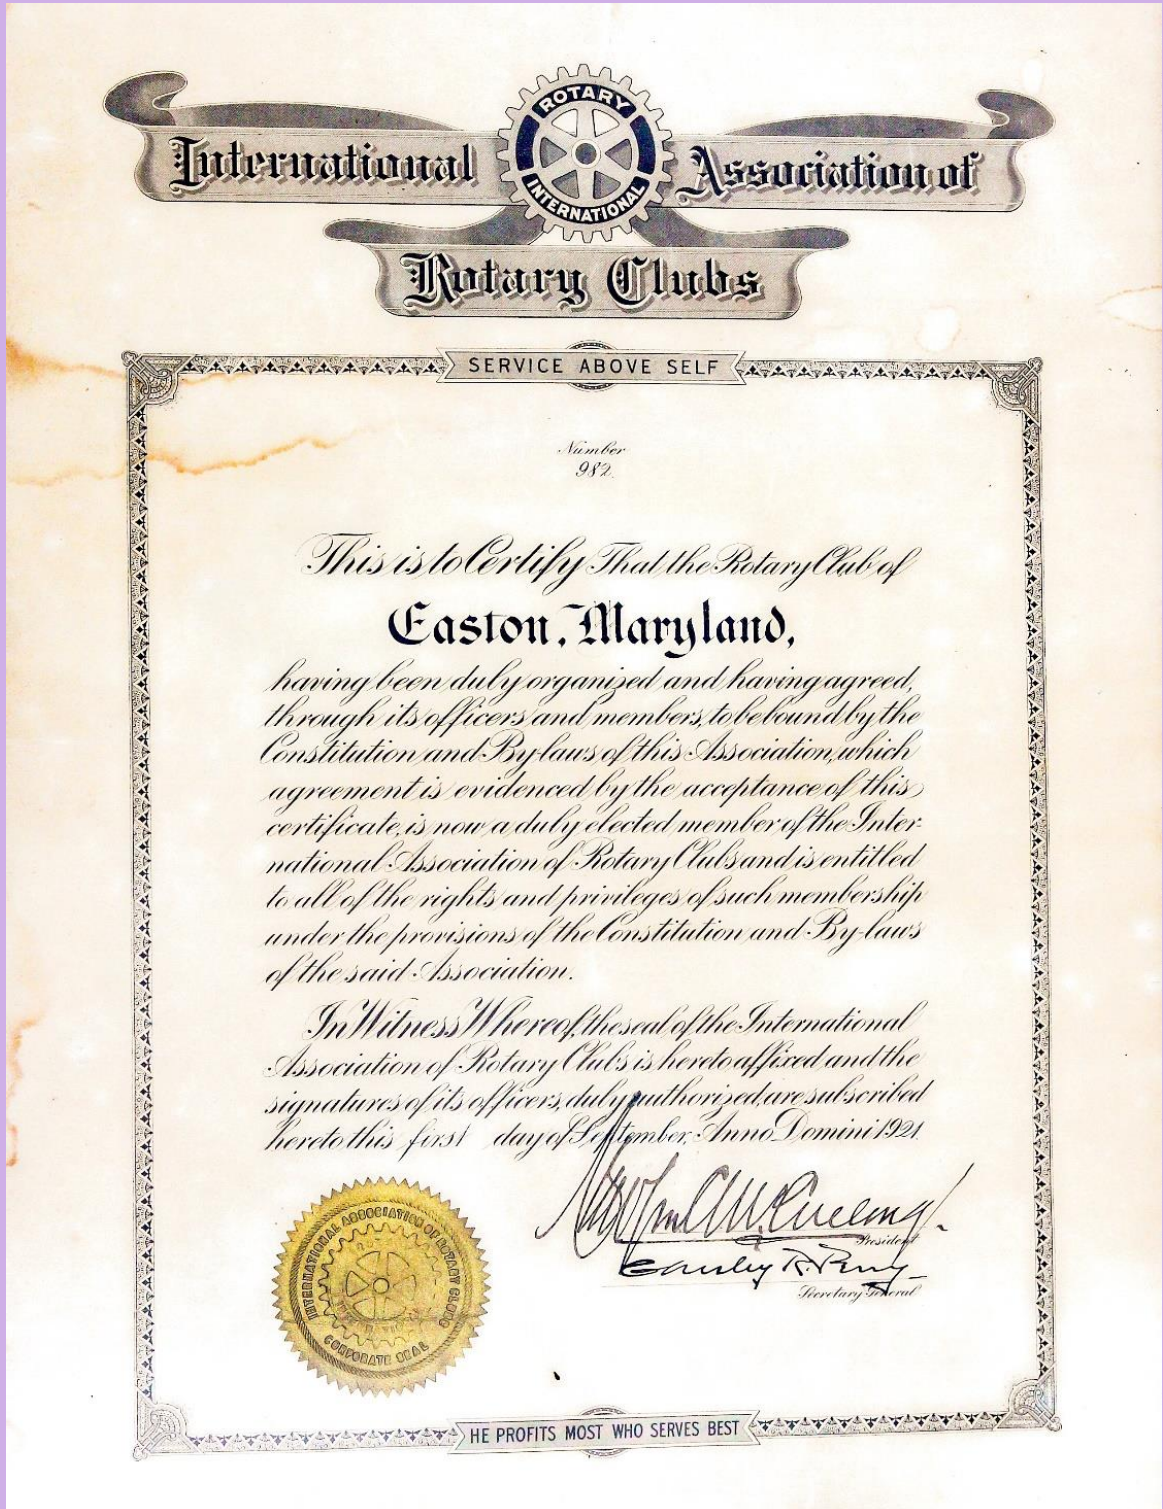 International Association of
ROTARY
INTERNATIONAL
Rotary Clubs
SERVICE ABOVE SELF
Number
982.
This is to Certify That the Rotary Club of
Easton, Maryland,
having been duly organized and having agreed,
through its officers and members, to be bound by the
Constitution and By-laws of this Association, which
agreement is evidenced by the acceptance of this
certificate, is now a duly elected member of the Inter-
national Association of Rotary Clubs and is entitled
to all of the rights and privileges of such membership
under the provisions of the Constitution and By-laws
of the said Association.
In Witness Whereof, the seal of the International
Association of Rotary Clubs is hereto affixed and the
signatures of its officers, duly authorized, are subscribed
hereto this first day of September, Anno Domini 1921.
President
Secretary General
INTERNATIONAL ASSOCIATION OF ROTARY CLUBS
CORPORATE SEAL
HE PROFITS MOST WHO SERVES BEST